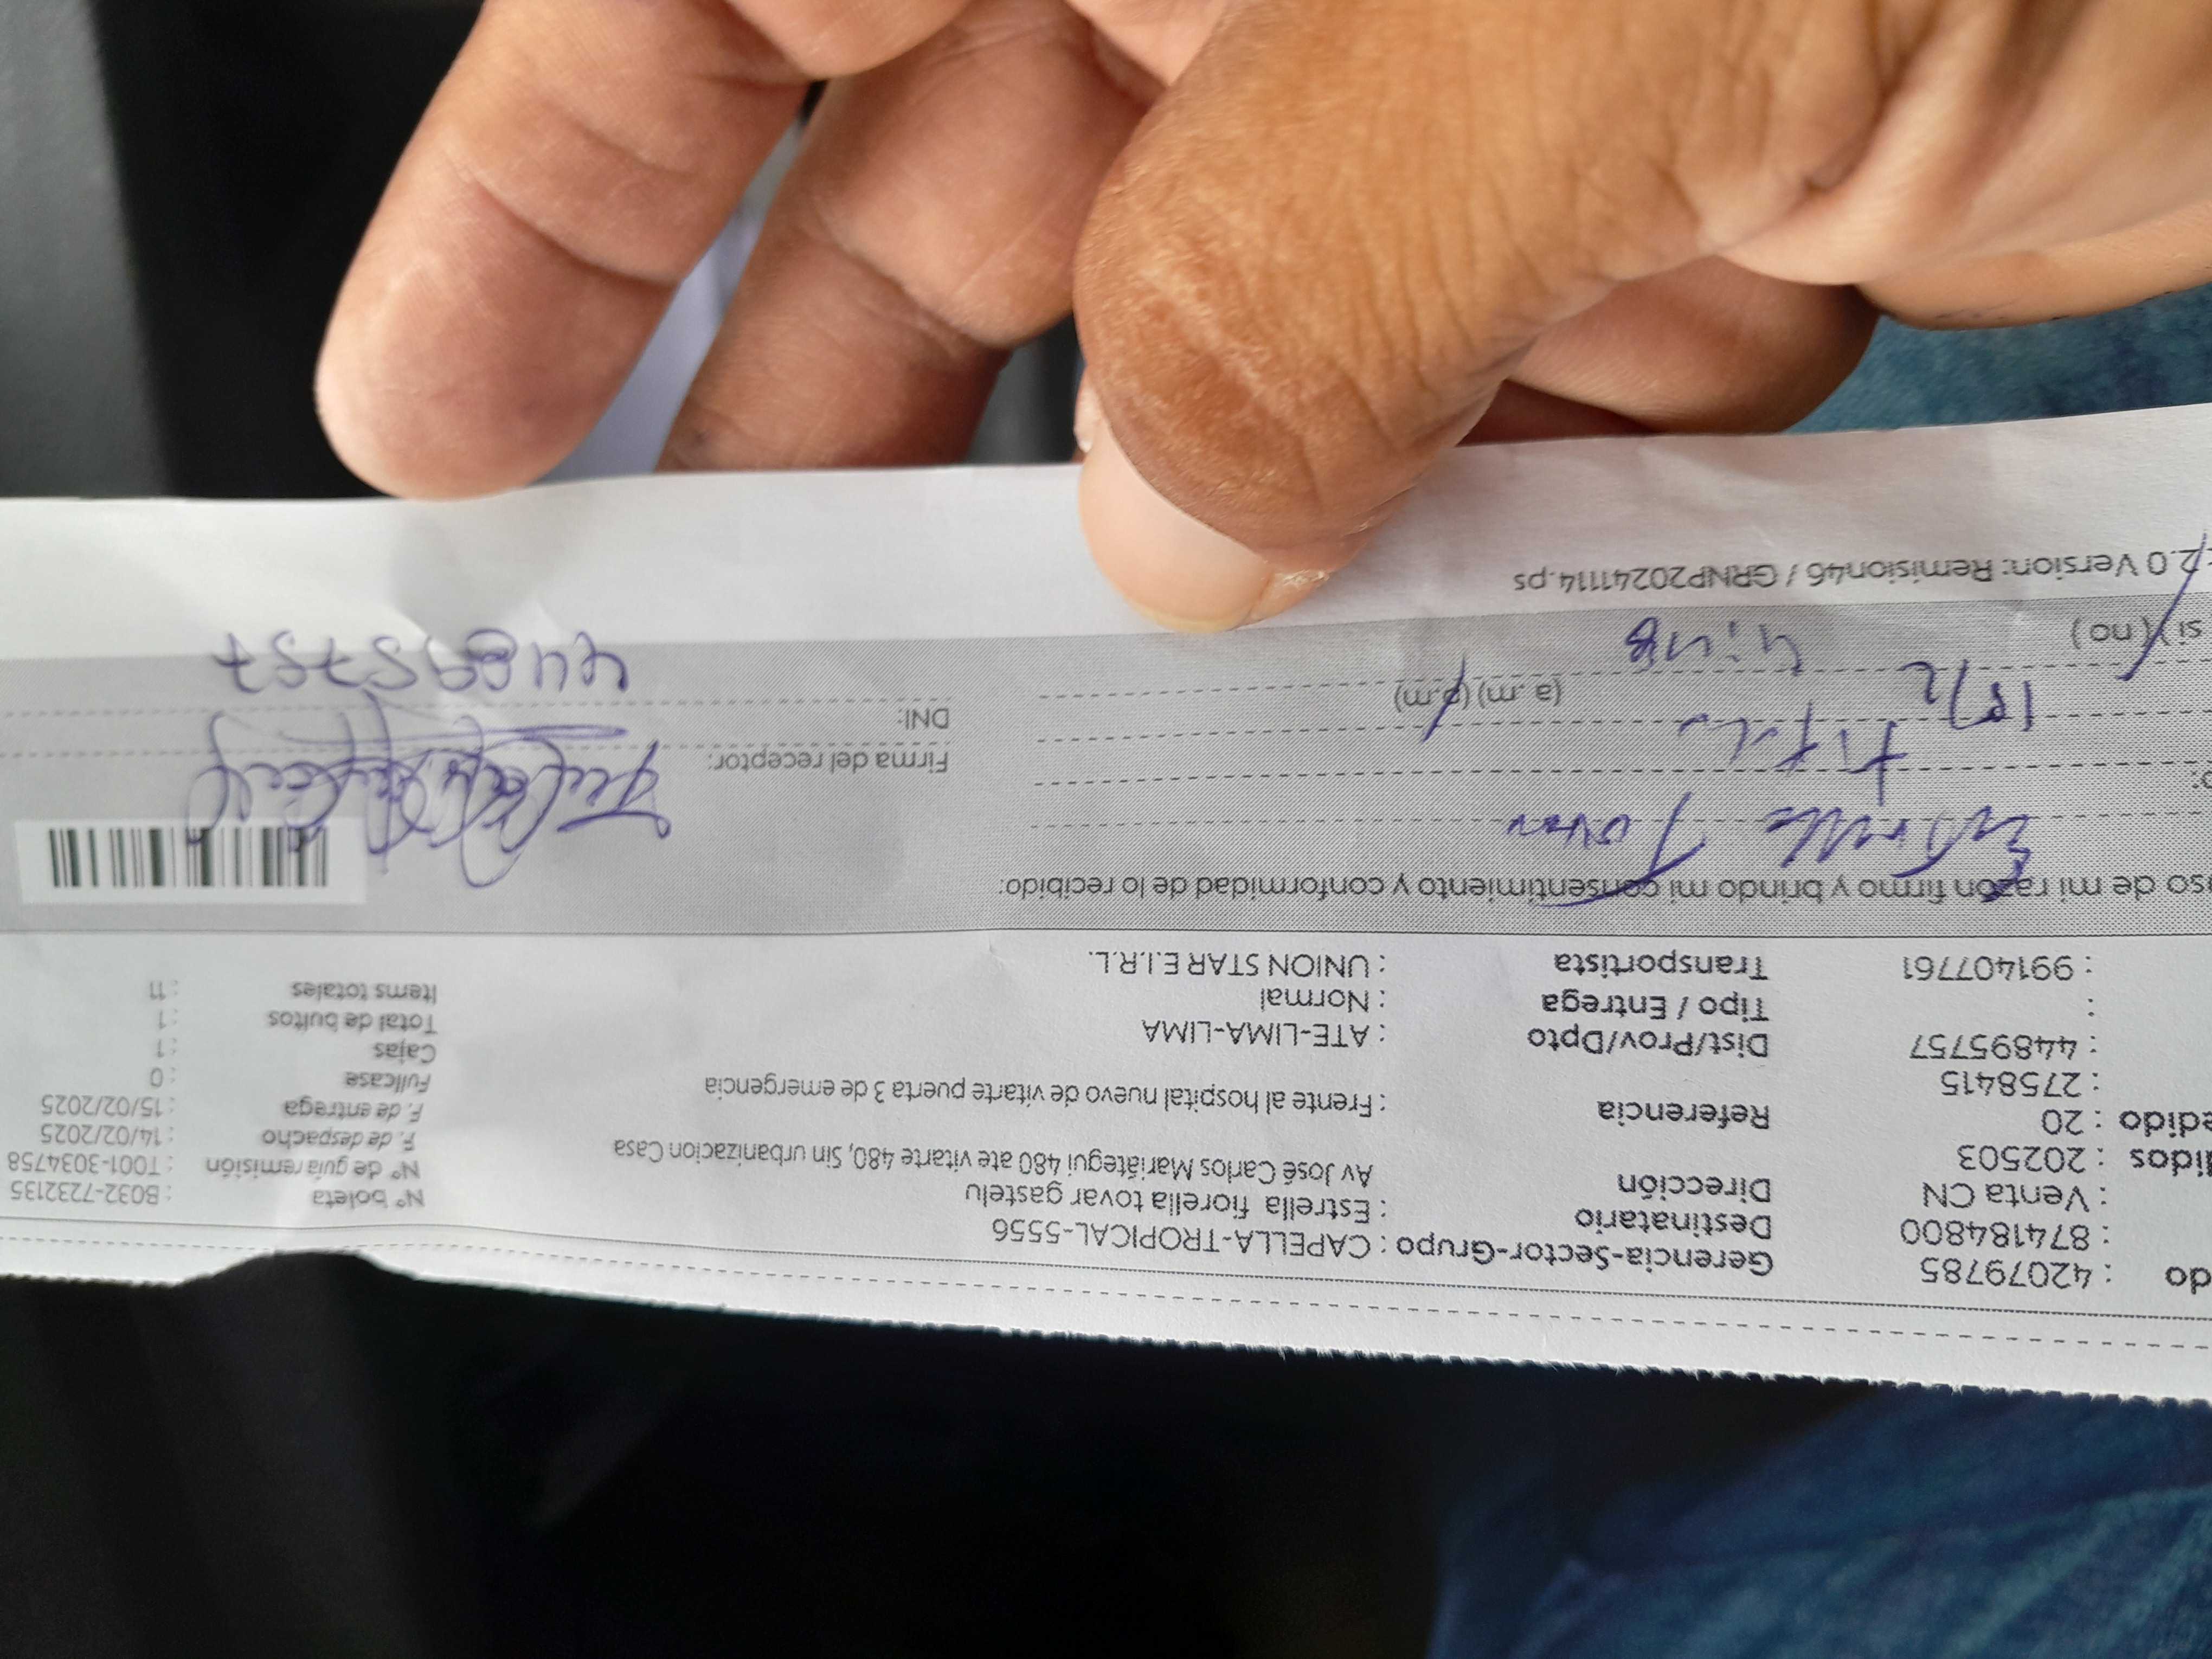 do : 42079785 Gerencia-Sector-Grupo : CAPELLA-TROPICAL-5556
: 874184800 Destinatario : Estrella fiorella tovar gastelu Nº boleta : B032-7232135
: Venta CN Dirección Av José Carlos Mariátegui 480 ate vitarte 480, Sin urbanizacion Casa Nº de guía remisión : T001-3034758
didos : 202503 F. de despacho : 14/02/2025
edido : 20 Referencia : Frente al hospital nuevo de vitarte puerta 3 de emergencia F. de entrega : 15/02/2025
: 2758415 Fullcase : 0
: 44895757 Dist/Prov/Dpto : ATE-LIMA-LIMA Cajas : 1
: Tipo / Entrega : Normal Total de bultos : 1
: 991407761 Transportista : UNION STAR E.I.R.L. Items totales : 11
uso de mi razón firmo y brindo mi consentimiento y conformidad de lo recibido:
Estrella Tovar
Firma del receptor:
15/2
DNI: 44895757
(a.m) (p.m) 4:48
si ) ( no )
2.0 Version: Remision46 / GRNP20241114.ps